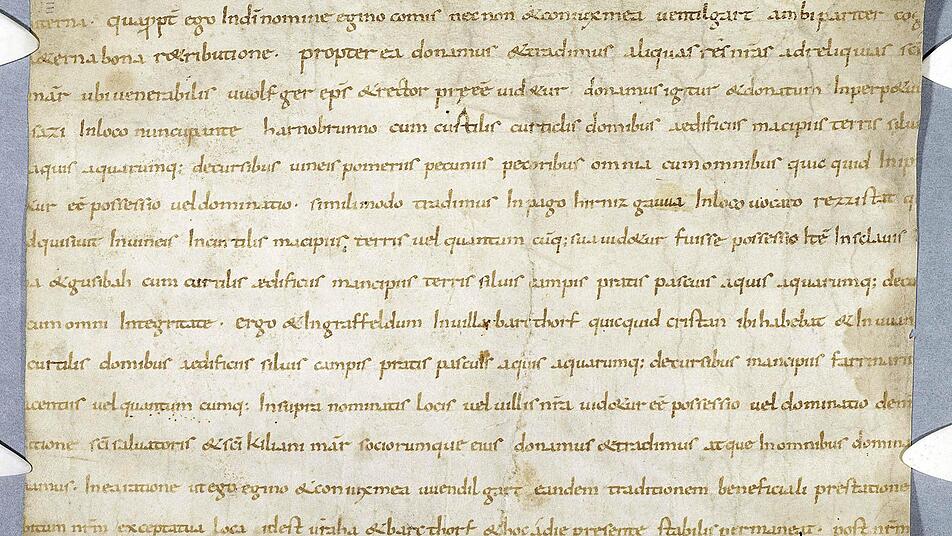 &terna. quapp̄t ego Indīnomine egino comis necnon &coniuxmea uentilgart ambipariter cog
&erna bona r&ributione. propterea donamus &tradimus aliquas res nr̄as adreliquias sc̄i
mar̄ ubi uenerabilis uuolfger ep̄s &rector pr̄eeē uid&ur donamus igitur &donatum Inperpetu
Inloco nuncupante harnobrunno cum curtilis curticlis domibus aedificiis macipiis terris silu
aquis aquarumq; decursibus uineis pomeriis pecuniis pecoribus omnia cumomnibus quicquid Inip
&ur eē possessio ueldominatio. similimodo tradimus Inpago hirnizgauua Inloco uocato rezzistat q
dquisiuit Inuineis Incurtilis macipiis, terris uel quantum cūq; sua uid&ur fuisse possessio Itē Insclauis
a &gusibah cum curtilis aedificiis mancipiis terris siluis campis pratis pascuis aquis aquarumq; decu
cum omni Integritate. ergo &Ingraffeldum Inuilla barcthorf quicquid cristan ibi habebat &In
curtilis domibus aedificiis siluis campis pratis pascuis aquis aquarumq; decursibus mancipiis farinariis
centiis uel quantum cumq; Insupra nominatis locis uel uillis nr̄a uid&ur eē possessio uel dominatio dem
tione sc̄i saluatoris &sc̄i kiliani mar̄ sociorumque eius donamus &tradimus atque Inomnibus domina
amus. Inearatione ut ego egino &coniuxmea uuendilgart eandem traditionem beneficiali prestatione
nr̄m exceptatua loca idest uraha &barcthorf &hoc adie presente stabilis permaneat. post nr̄m